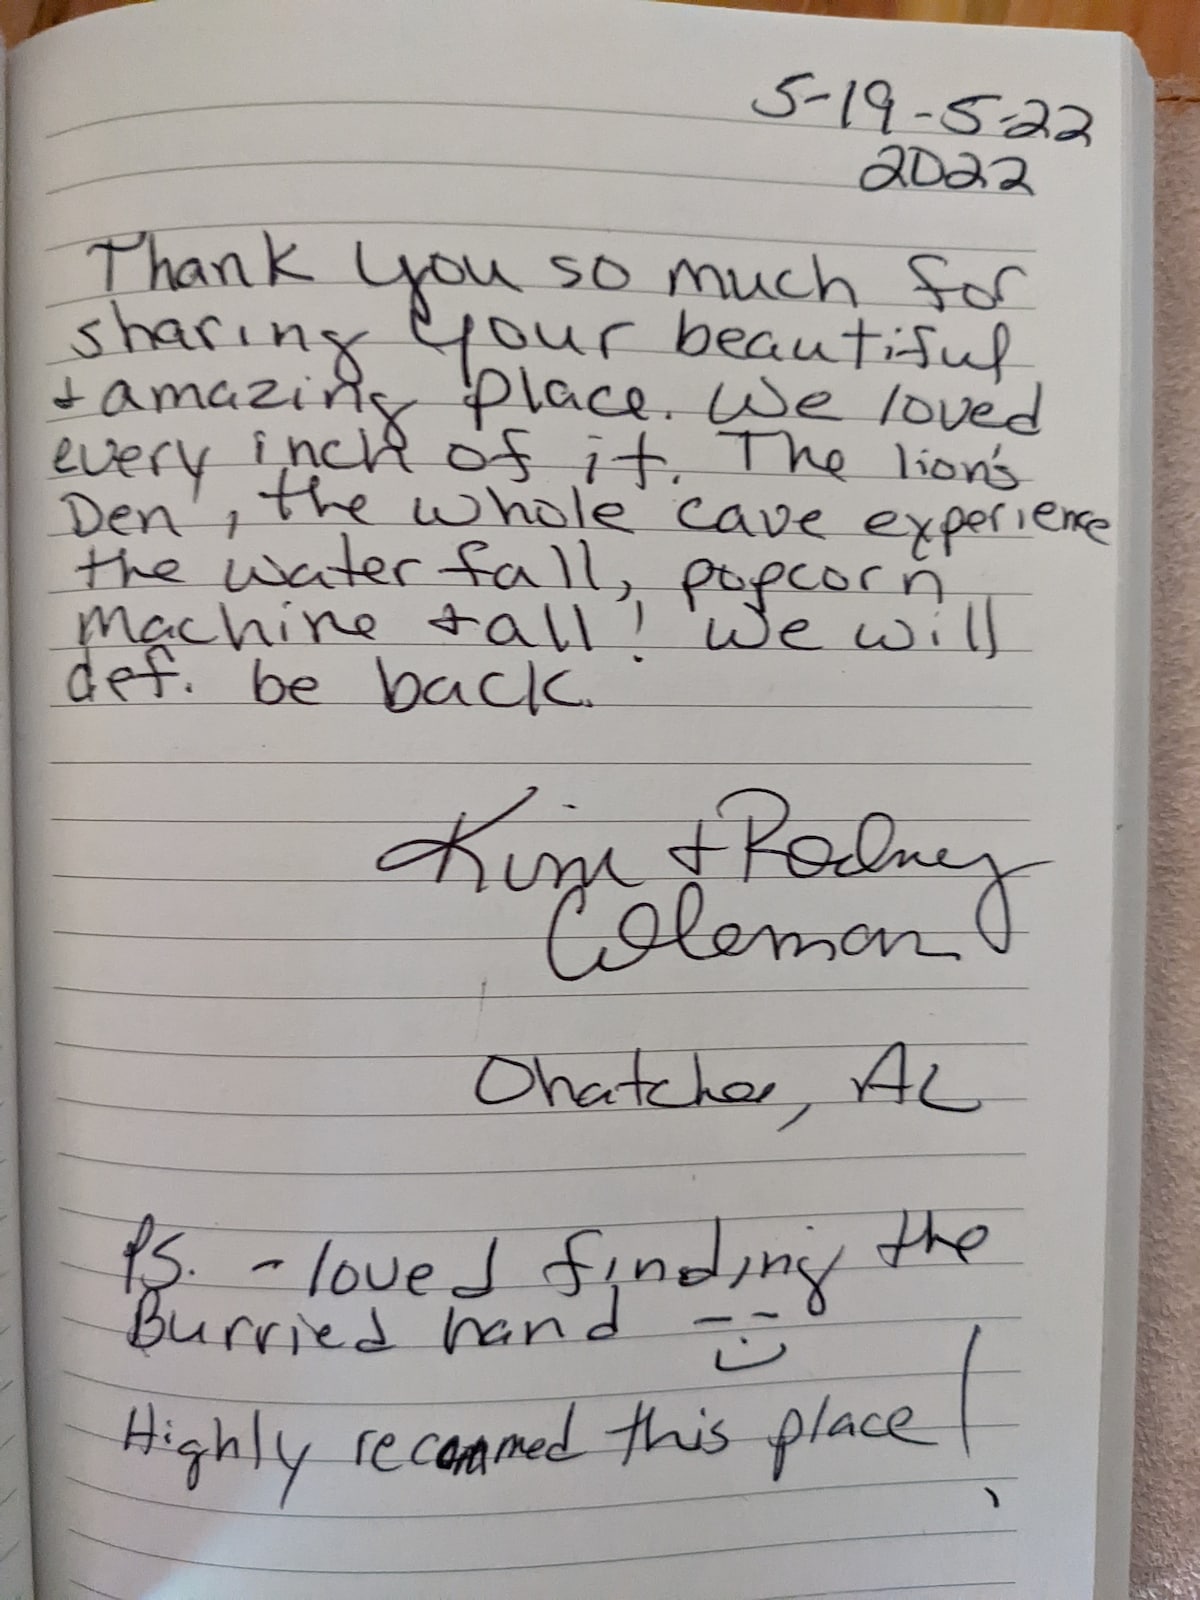 5-19-5-22
2022
Thank you so much for
sharing your beautiful
+ amazing place. We loved
every inch of it. The lion's
Den, the whole cave experience
the water fall, popcorn
machine + all! We will
def. be back.
Kim + Rodney
Coleman
Ohatchee, AL
PS. - loved finding the
Burried hand
Highly recommed this place!